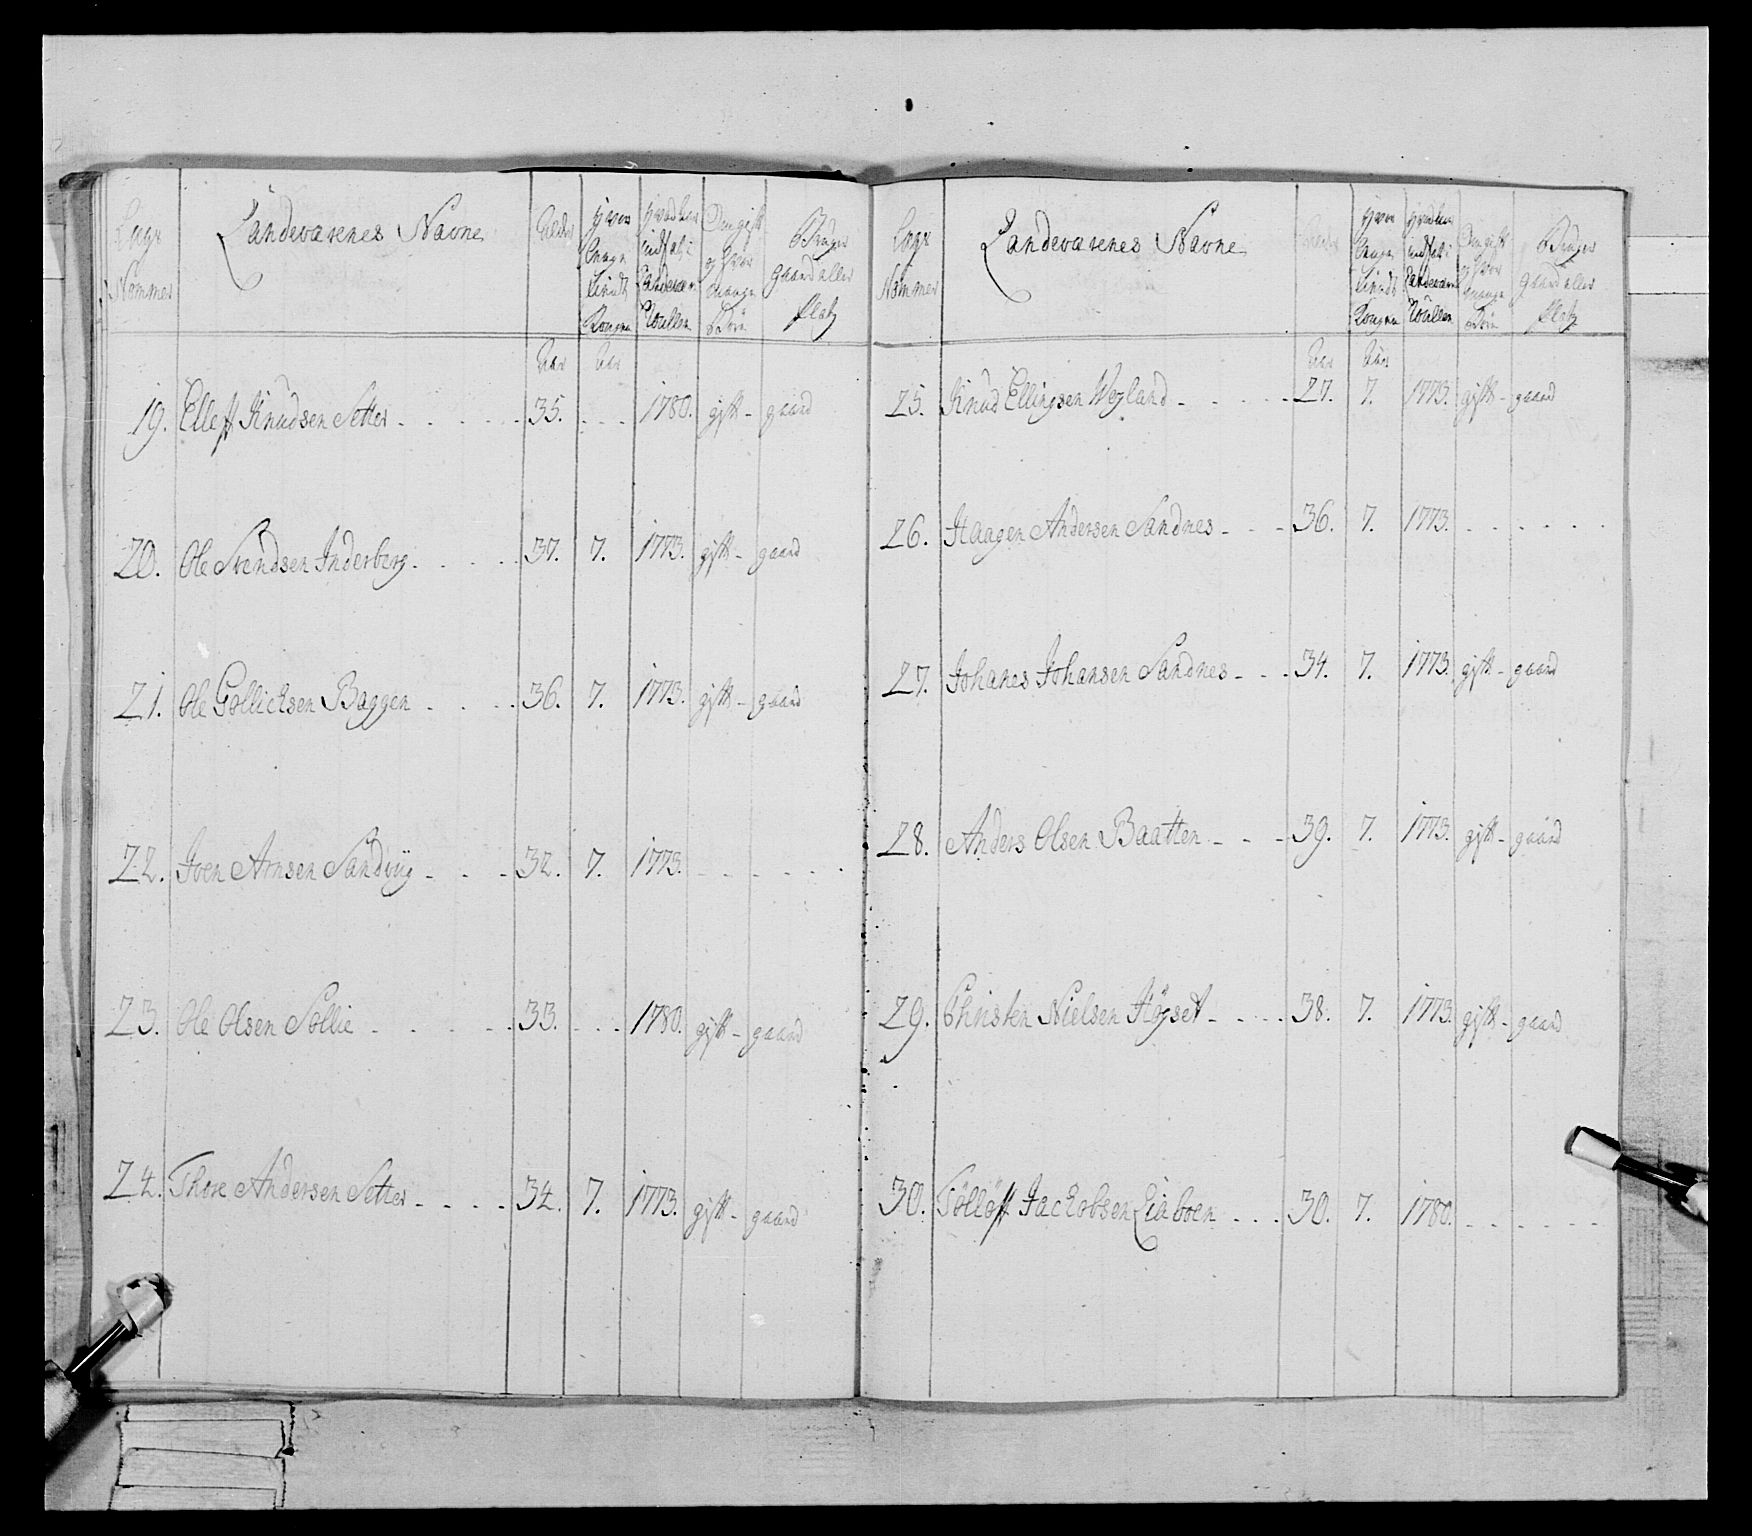 Lægs Nommer Landeværenes Navne Alder Hvor længe tient Kongen Hvad Aar indsat i Landeværn Roullen Om gift og hvor mange Børn Bruger Gaard eller Platz
Aar Aar
19. Elleff Knudsen Setter 35. 1780. gift - gaard
20. Ole Svendsen Inderberg 37. 7. 1773. gift - gaard
21. Ole Gollichsen Baggen 36. 7. 1773. gift - gaard
22. Joen Arnsen Sandviig 32. 7. 1773.
23. Ole Olsen Sollie 33. 1780. gift - gaard
24. Thore Andersen Setter 34. 7. 1773. gift - gaard
Lægs Nommer Landeværenes Navne Alder Hvor længe tient Kongen Hvad Aar indsat i Landeværn Roullen Om gift og hvor mange Børn Bruger Gaard eller Platz
Aar Aar
25. Knud Ellingsen Weyland 27. 7. 1773. gift - gaard
26. Haagen Andersen Sandnes 36. 7. 1773.
27. Johanes Johansen Sandnes 34. 7. 1773. gift - gaard
28. Anders Olsen Baatten 39. 7. 1773. gift - gaard
29. Christen Nielsen Högset 38. 7. 1773. gift - gaard
30. Tölløff Jackobsen Liaboen 30. 7. 1780.